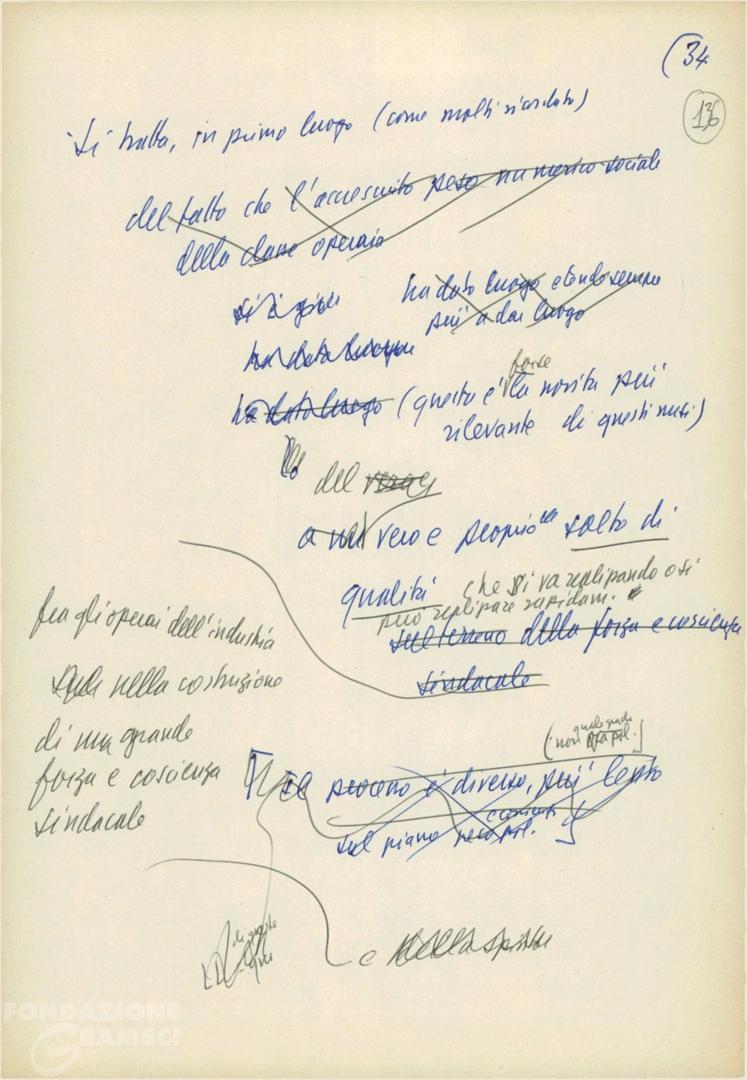 (34
136
Si tratta, in primo luogo (come molti ricordato)
del fatto che l'accresciuto peso numerico sociale
della classe operaia
ha dato luogo e tende sempre
più a dar luogo
ha dato luogo
forse
ha dato luogo (questa è la novità più
rilevante di questi mesi)
del
a un vero e proprio salto di
qualità che si va sviluppando o si
può sviluppare rapidam.
sul terreno della forza e coscienza
sindacale
fra gli operai dell'industria
nella costruzione
di una grande
forza e coscienza
sindacale
(non
Il processo è diverso, più lento
sul piano pol.
e della
FONDAZIONE
GRAMSCI